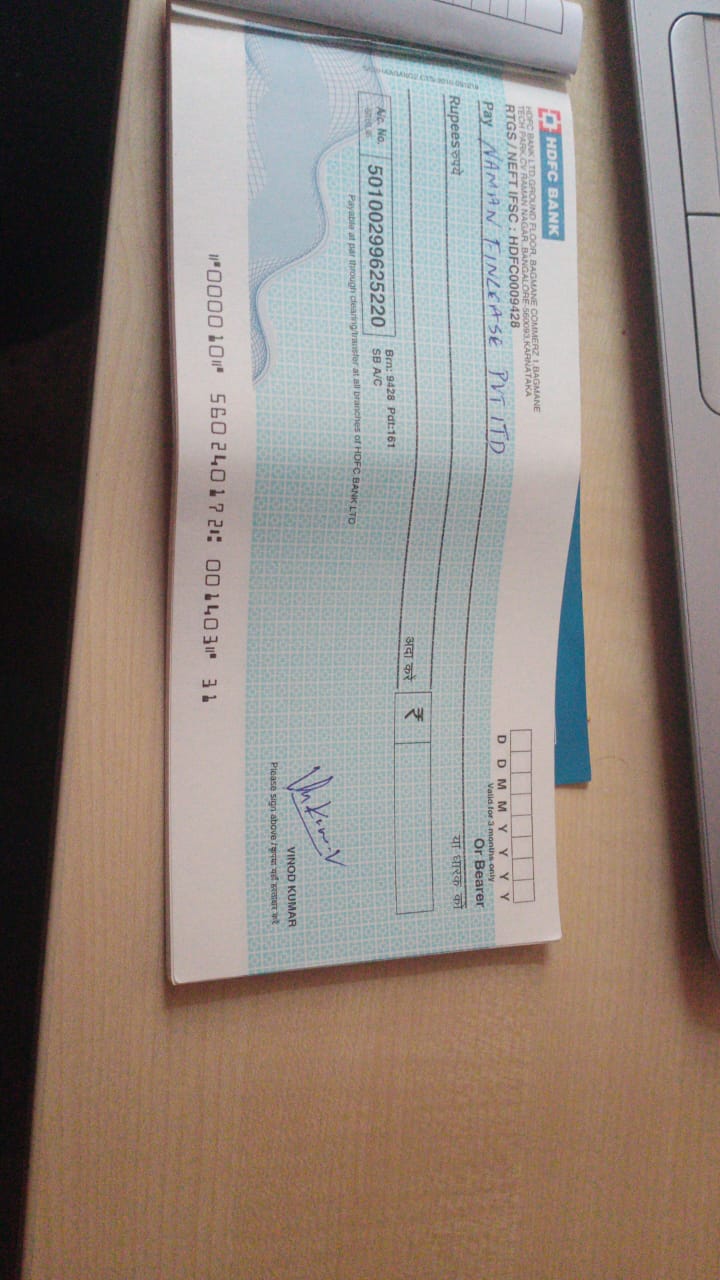 HDFC BANK
HDFC BANK LTD, GROUND FLOOR, BAGMANE COMMERZ 1, BAGMANE
TECH PARK, CV RAMAN NAGAR, BANGALORE-560093, KARNATAKA
RTGS / NEFT IFSC : HDFC0009428
D D M M Y Y Y Y
Valid for 3 months only
Pay NAMAN FINLEASE PVT LTD
Or Bearer
या धारक को
Rupees रुपये
अदा करें
₹
A/c. No.
50100299625220
Brn: 9428 Pdt:161
SB A/C
Payable at par through clearing/transfer at all branches of HDFC BANK LTD
VINOD KUMAR
Please sign above
⑈000010⑈ 560240172⑆ 001403⑈ 31